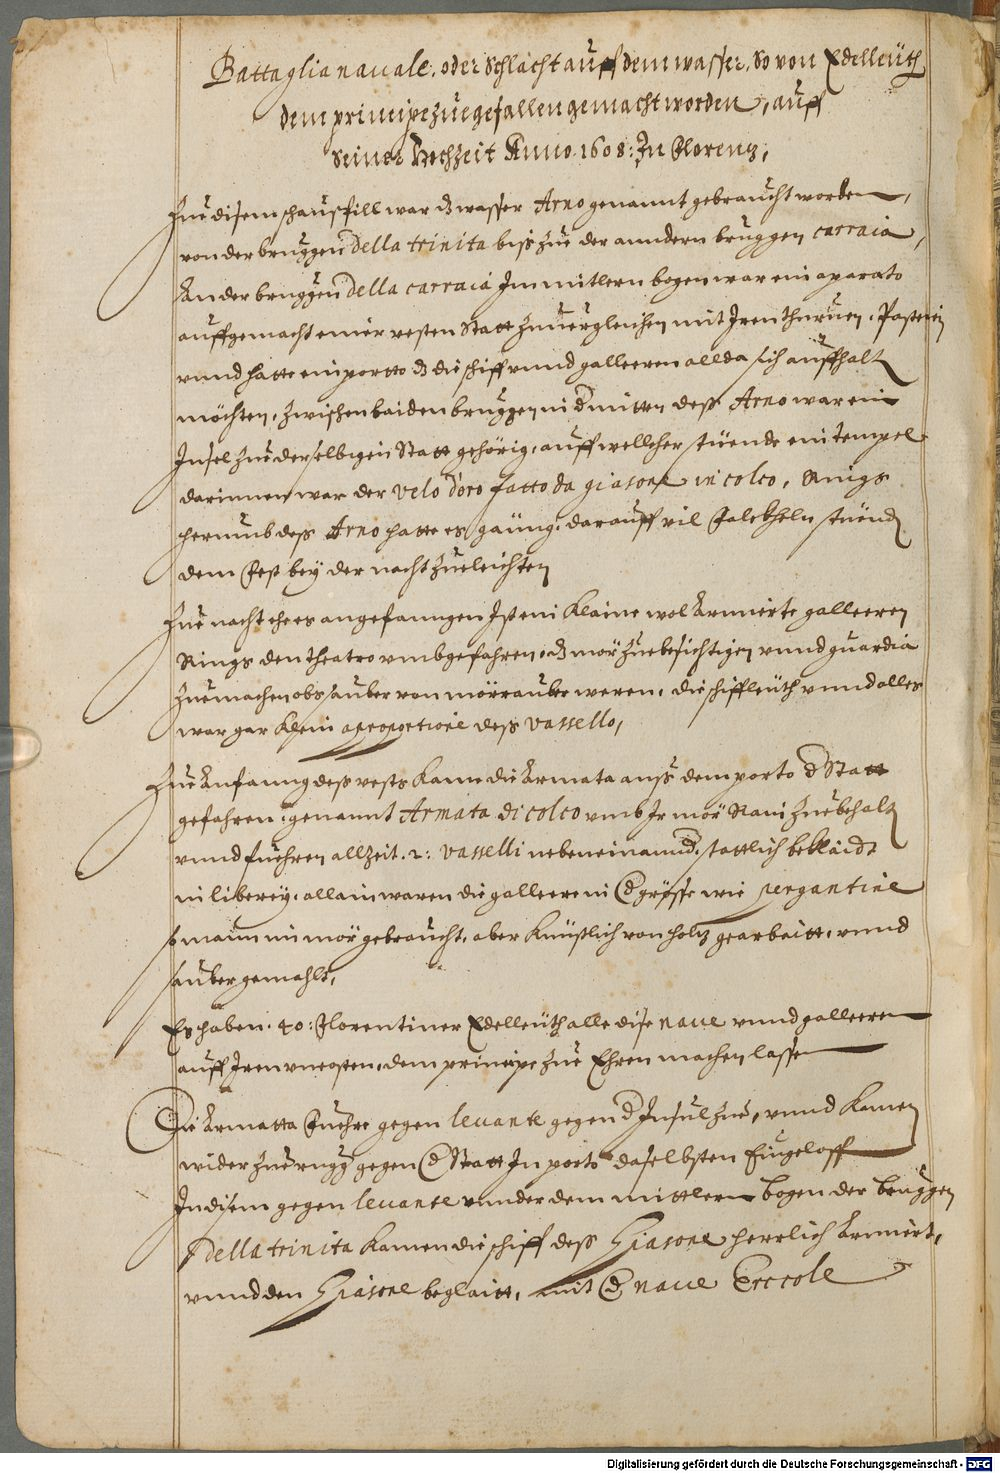 Battaglia nauale. oder Schlacht auff dem wasser. so von Edelleüth
dem principe zue gefallen gemacht worden, auff
seiner Hochzeit Anno. 1608: In Florenz,
Zue disem schauspill war dz wasser Arno genannt gebraucht worden,
von der bruggen della trinita bis zue der anndern bruggen carraia,
An der bruggen della carraia Im mitlern bogen war ein aparato
auffgemacht einer vesten Statt zuuergleichen mit Iren thurnen. Pasteien
vnnd hatte ein portto dz die schiff vnnd galleeren allda sich auffhalten
möchten, zwischen baiden bruggen in d mitten dess Arno war ein
Insel zue derselbigen Statt gehörig, auff wellcher stüende ein tempel
darinnen war der velo d'oro fatto da giasone in colco, Rings
herumb dess Arno hatte es gäung, darauff vil Fakheln stüenden
dem Fest bey der nacht zue leichten
Zue nacht ehe es angefanngen Ist ein klaine wol Armierte galleeren
Rings den theatro vmbgefahren, dz mör zue besichtigen vnnd guardia
zue machen obs sauber von mörrauber weren, die schiffleüth vnnd alles
war gar klein a proportione dess vassello,
Zue Anfanng dess vests kame die Armata auss dem porto d Statt
gefahren: genannt Armata di colco vmb Ir mör Rain zue behalten
vnnd fuehren allzeit. 2: vasselli neben einannd. stattlich beklaidt
in liberey, allain waren die galleeren in d grösse wie pergantine
so mann im mör gebraucht, aber künstlich von holtz gearbaitt, vnnd
sauber gemahlt,
Es haben. 40: Florentiner Edelleüth alle dise naue vnnd galleeren
auff Iren vncosten, dem principe zue Ehren machen lassen
Die Armatta Fuehre gegen leuante gegen d Insul zue, vnnd kamen
wider zue rugg gegen d Statt In porto daselbsten
In disem gegen leuante vnnder dem mittlern bogen der bruggen
della trinita kamen die schiff dess Giasone herrlich Armiert,
vnnd den Giasone beglaitt, mit d naue Erccole
Digitalisierung gefördert durch die Deutsche Forschungsgemeinschaft - DFG